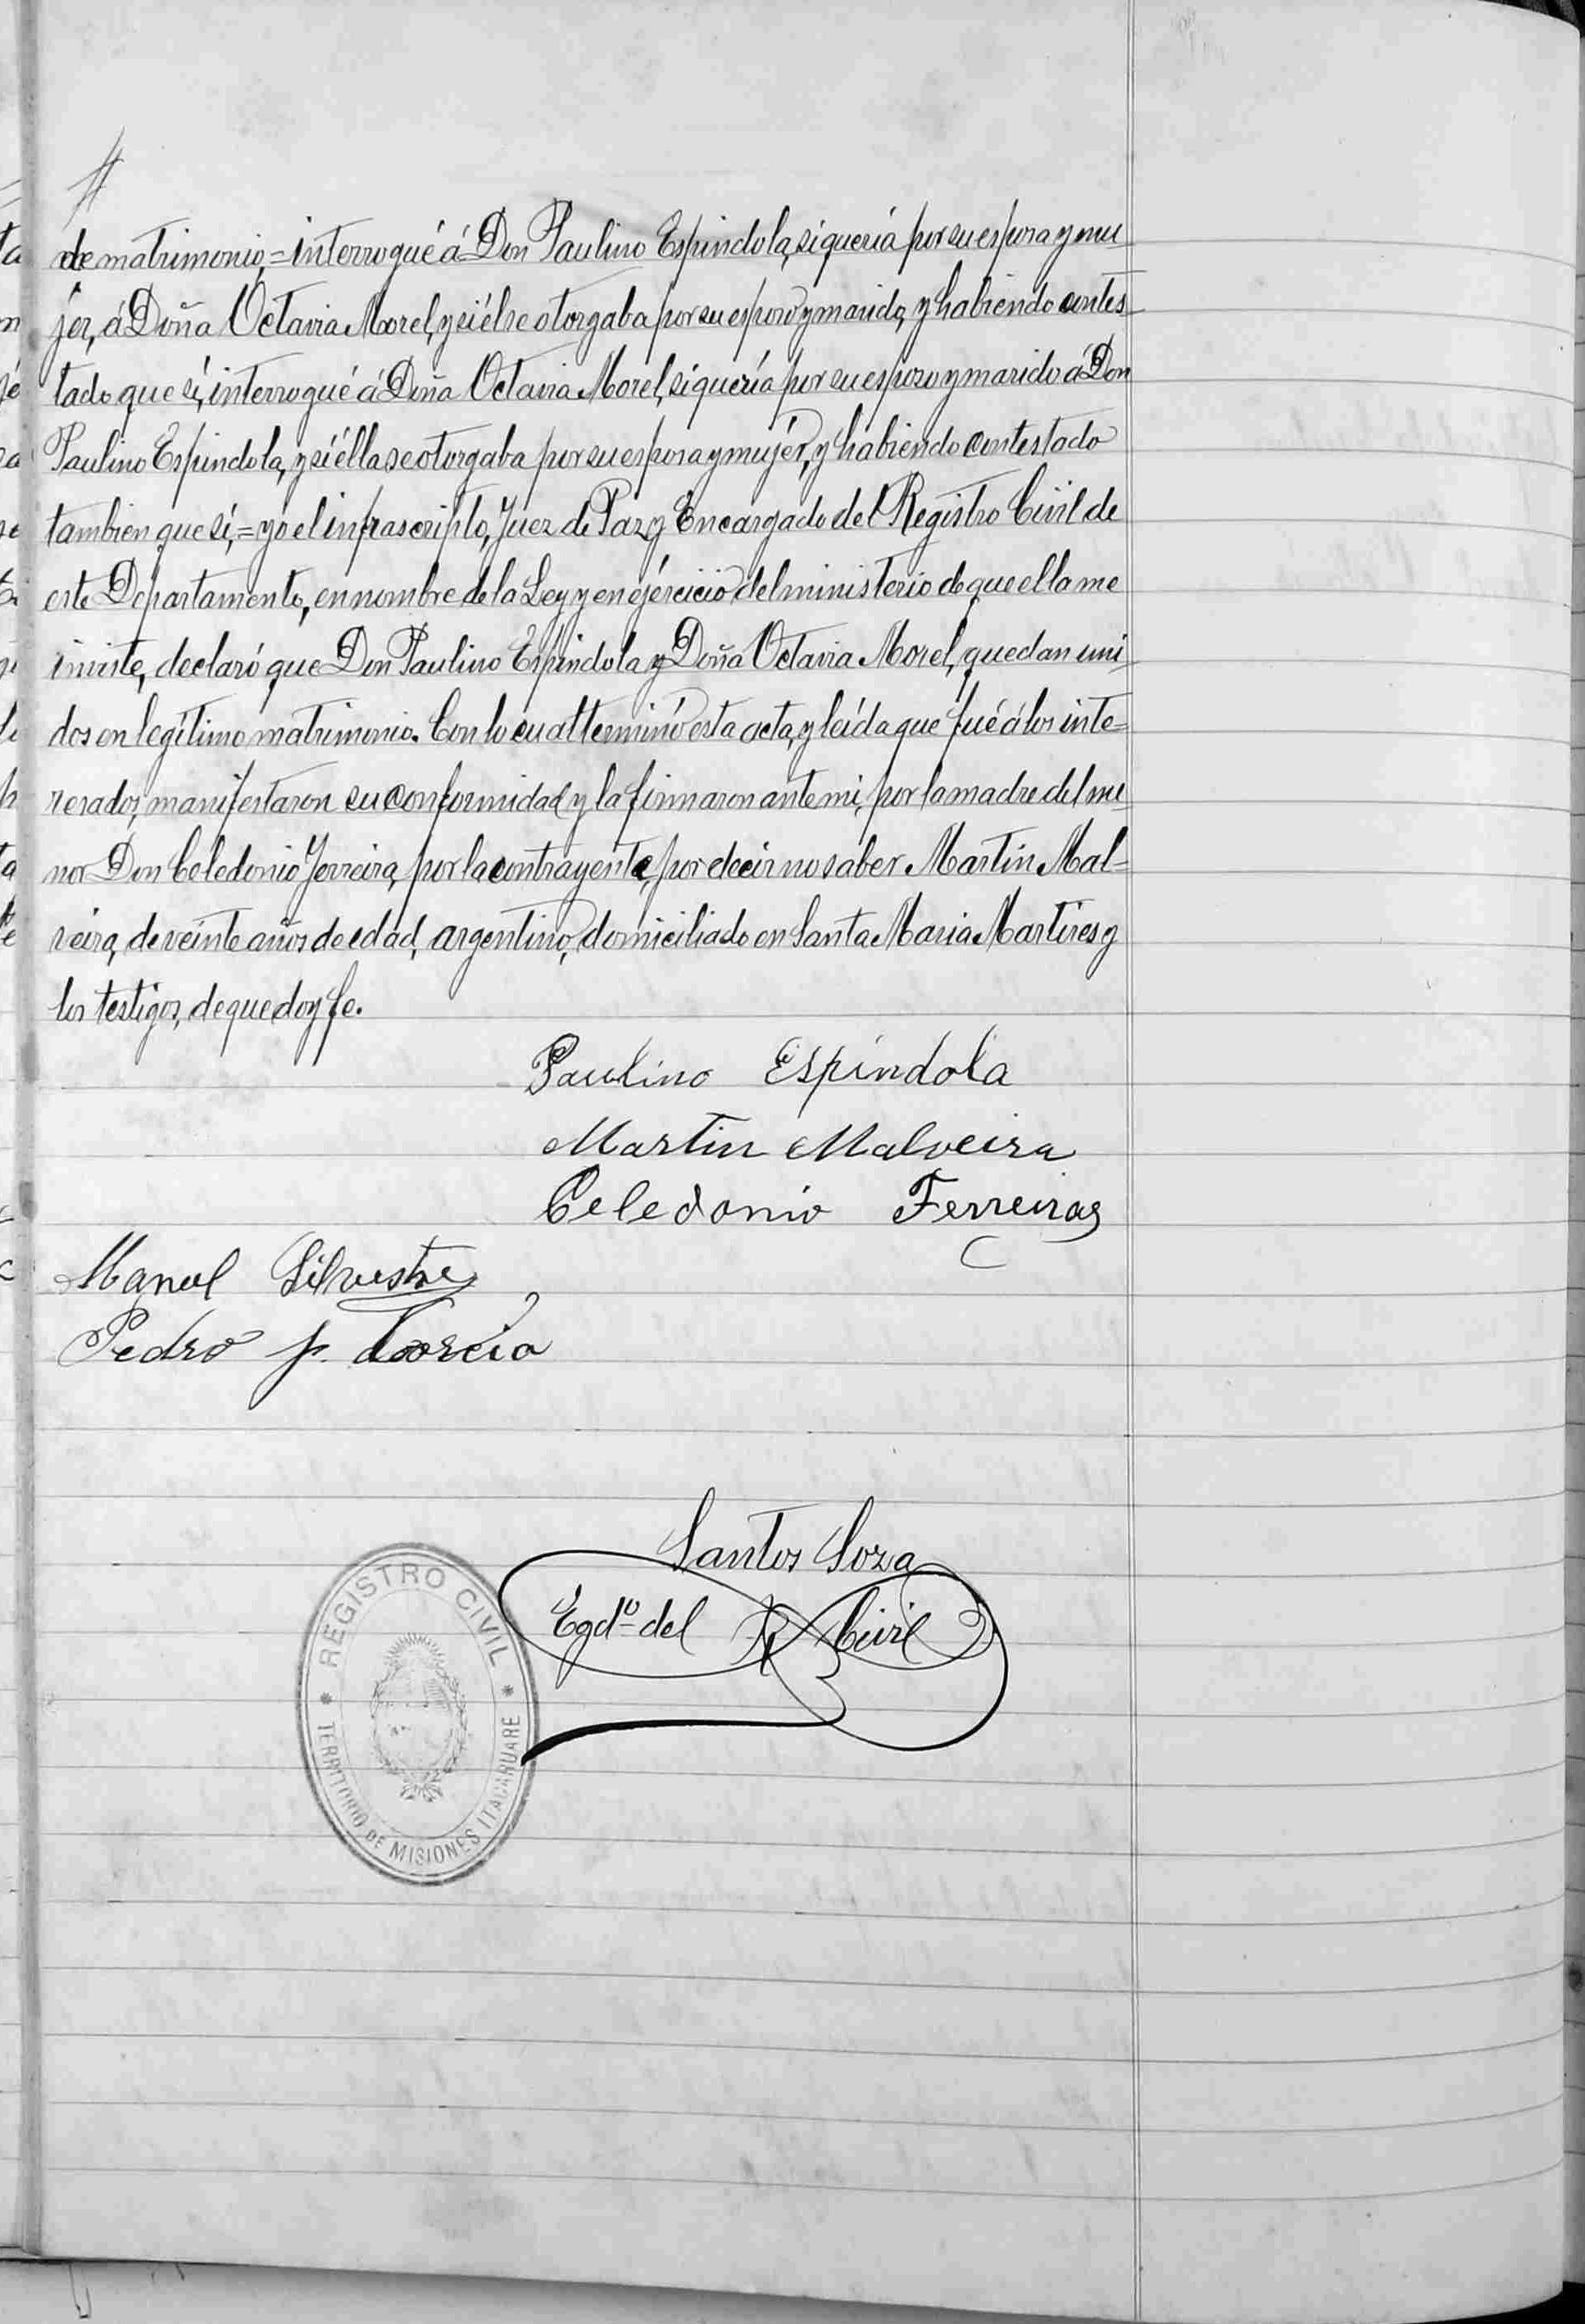 de matrimonio,=interrogué á Don Paulino Espindola, si quería por su esposa y mu-
jer, á Doña Octavia Morel, y si él se otorgaba por su esposo y marido, y habiendo contes-
tado que sí, interrogué á Doña Octavia Morel, si quería por su esposo y marido á Don
Paulino Espindola, y si élla se otorgaba por su esposa y mujér, y habiendo contestado
tambien que sí,=yo el infrascripto, Juez de Paz y Encargado del Registro Civil de
este Departamento, en nombre de la Ley y en ejércicio del ministerio de que ella me
inviste, declaró que Don Paulino Espindola y Doña Octavia Morel, quedan uni-
dos en legítimo matrimonio. Con lo cual terminó esta acta, y leída que fué á los inte=
resados, manifestaron su conformidad y la firmaron ante mi, por la madre del me
nor Don Celedonio Ferreira, por la contrayente, por decir no saber Martín Mal=
veira, de veinte años de edad, argentino, domiciliado en Santa Maria Martires y
los testigos, de que doy fe.
Paulino Espindola
Martin Malveira
Celedonio Ferreira
Manuel Silvestre
Pedro p.
Santos Soza
Egdº del R Civil
REGISTRO CIVIL
TERRITORIO DE MISIONES ITACARUARE